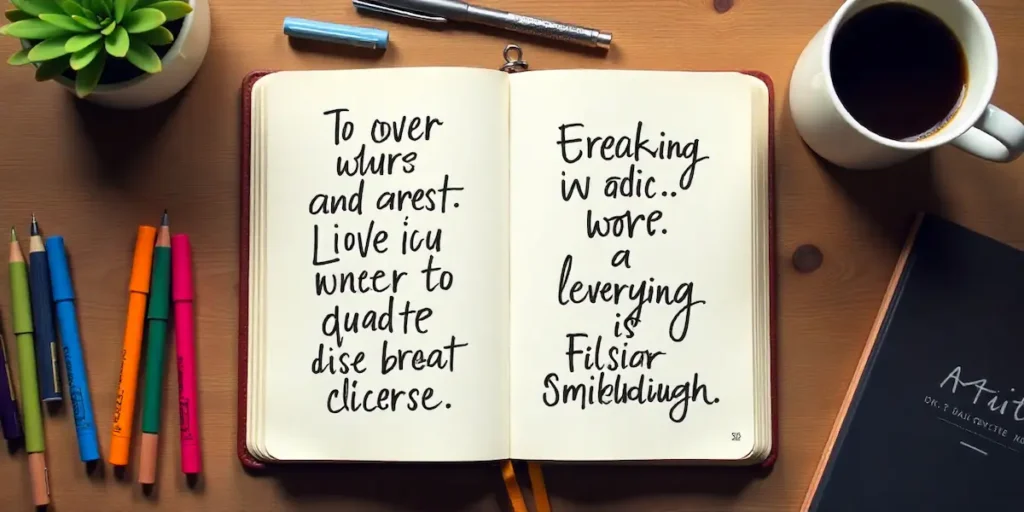 To over
wlurs
and arest.
Liove icu
wneer to
quadte
dise breat
clicerse.
Ereaking
in adic..
wore.
a
leverying
is
Filsiar
Smibldiugh.